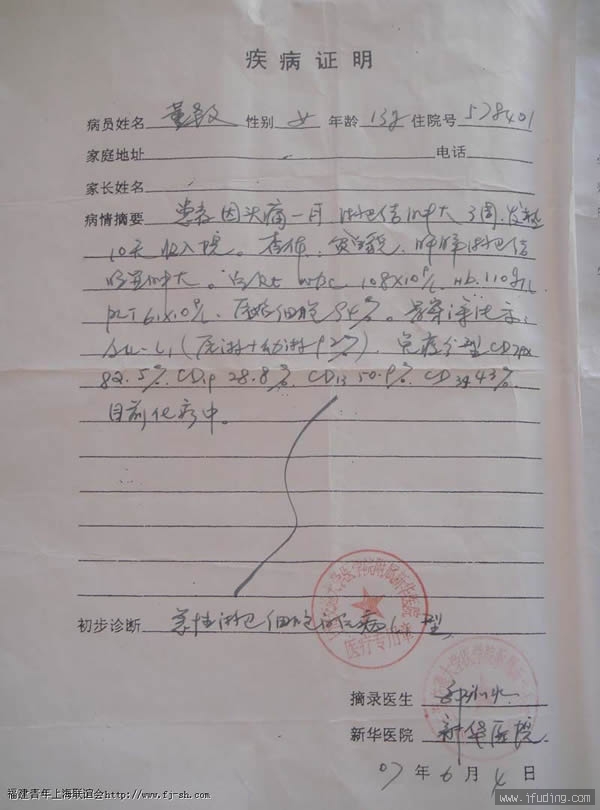 疾病证明
病员姓名 性别 女 年龄 13岁 住院号 578401
家庭地址 电话
家长姓名
病情摘要 患者因头痛一月 淋巴结肿大3周,发热
10天收入院。查体: 贫血貌, 肝脾淋巴结
明显肿大。 WBC 108×10⁹/L Hb 110g/L
PLT 61×10⁹/L 原幼细胞 94%。骨穿涂片示:
ALL-L1 (原淋+幼淋92%), 免疫分型
82.5%, CD19 28.8%, CD13 50.9%, CD34 43%.
目前化疗中。
初步诊断 急性淋巴细胞白血病 型
医疗专用章
摘录医生
新华医院 新华医院
07 年 6 月 4 日
福建青年上海联谊会http://www.fj-sh.com
www.jfuding.com